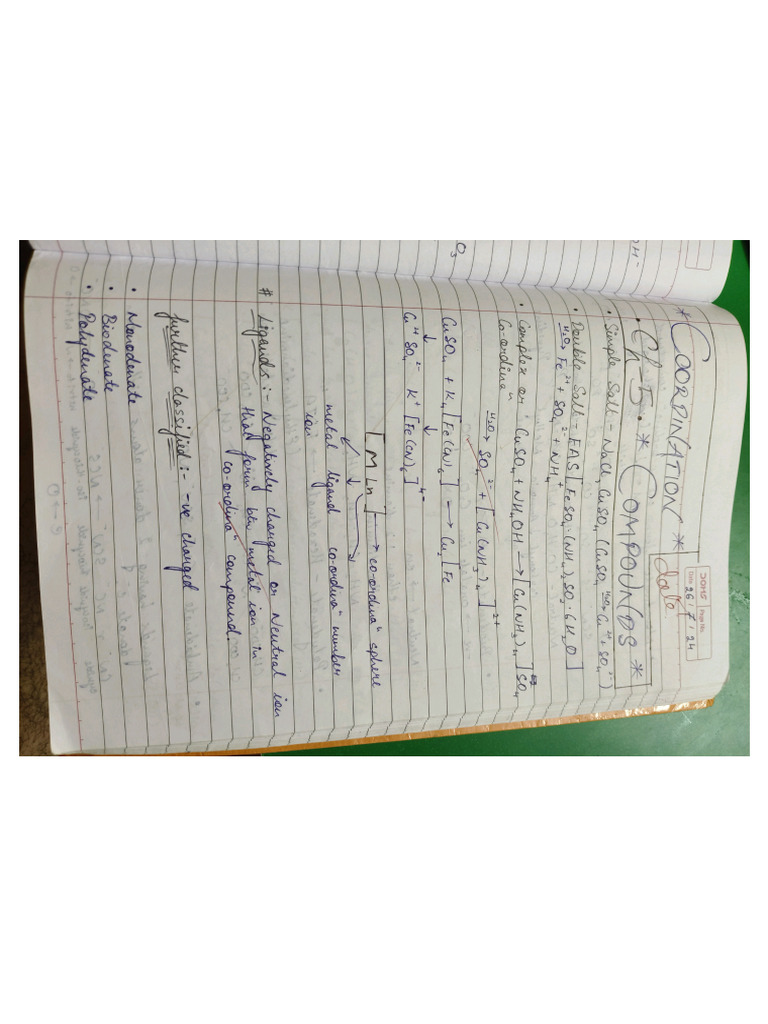 DOMS Page No.
Date 26 / 7 / 24
date
* COORDINATION *
• Ch-5. * COMPOUNDS *
• Simple Salt - NaCl, CuSO₄ (CuSO₄ H₂O→ Cu⁺⁺ + SO₄²⁻)
• Double Salt - FAS [FeSO₄·(NH₄)₂SO₃·6H₂O]
H₂O→ Fe²⁺ + SO₄²⁻ + NH₄⁺
• Complex or CuSO₄ + NH₄OH → [Cu(NH₃)₄]SO₄
Co-ordinaⁿ
H₂O→ SO₄²⁻ + [Cu(NH₃)₄]²⁺
CuSO₄ + K₄[Fe(CN)₆] → Cu₂[Fe
↓ ↓
Cu⁺⁺SO₄²⁻ K⁺ [Fe(CN)₆]⁴⁻
[MLn] → co-ordinaⁿ sphere
metal ligand co-ordinaⁿ number
ion
# Ligands :- Negatively charged or Neutral ion
that form by metal ion in
co-ordinaⁿ compound.
further classified :- -ve charged
• Monodenate
• Biodenate
• Polydenate
OH⁻
O₃